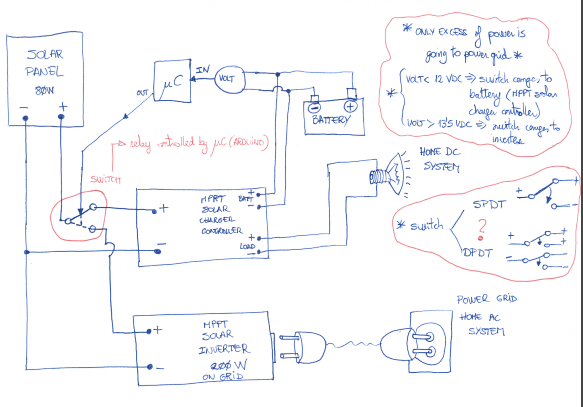 SOLAR
PANEL
80W
- +
OUT
μC
IN
VOLT
- +
BATTERY
* ONLY EXCESS of power is
going to power grid *
* VOLT < 12 VDC ⇒ switch
battery (MPPT solar
charge controller)
VOLT > 13'5 VDC ⇒ switch
inverter
relay controlled by μC (ARDUINO)
SWITCH
HOME DC
SYSTEM
+ MPPT BATT +
SOLAR -
CHARGER
CONTROLLER +
- LOAD -
SPDT
+ +
* switch ?
DPDT
+ +
- -
+ MPPT
SOLAR
INVERTER
200W
- ON GRID
POWER GRID
HOME AC
SYSTEM